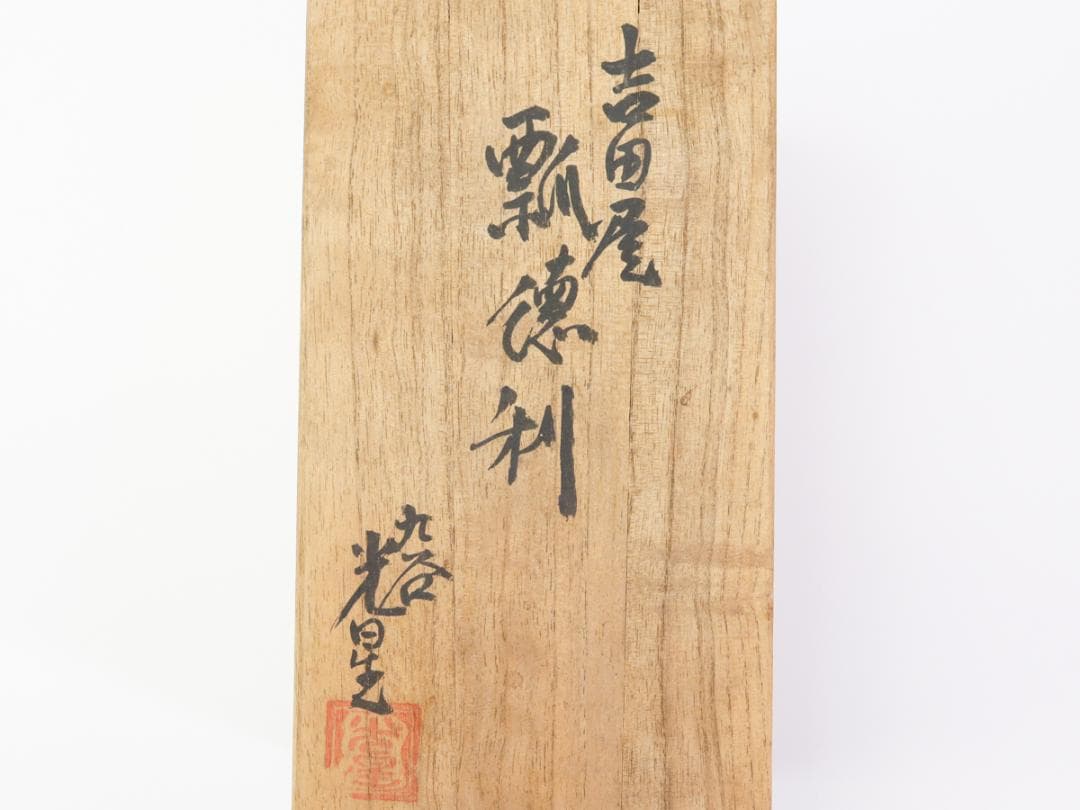 吉田屋
瓢徳利
九谷
光星